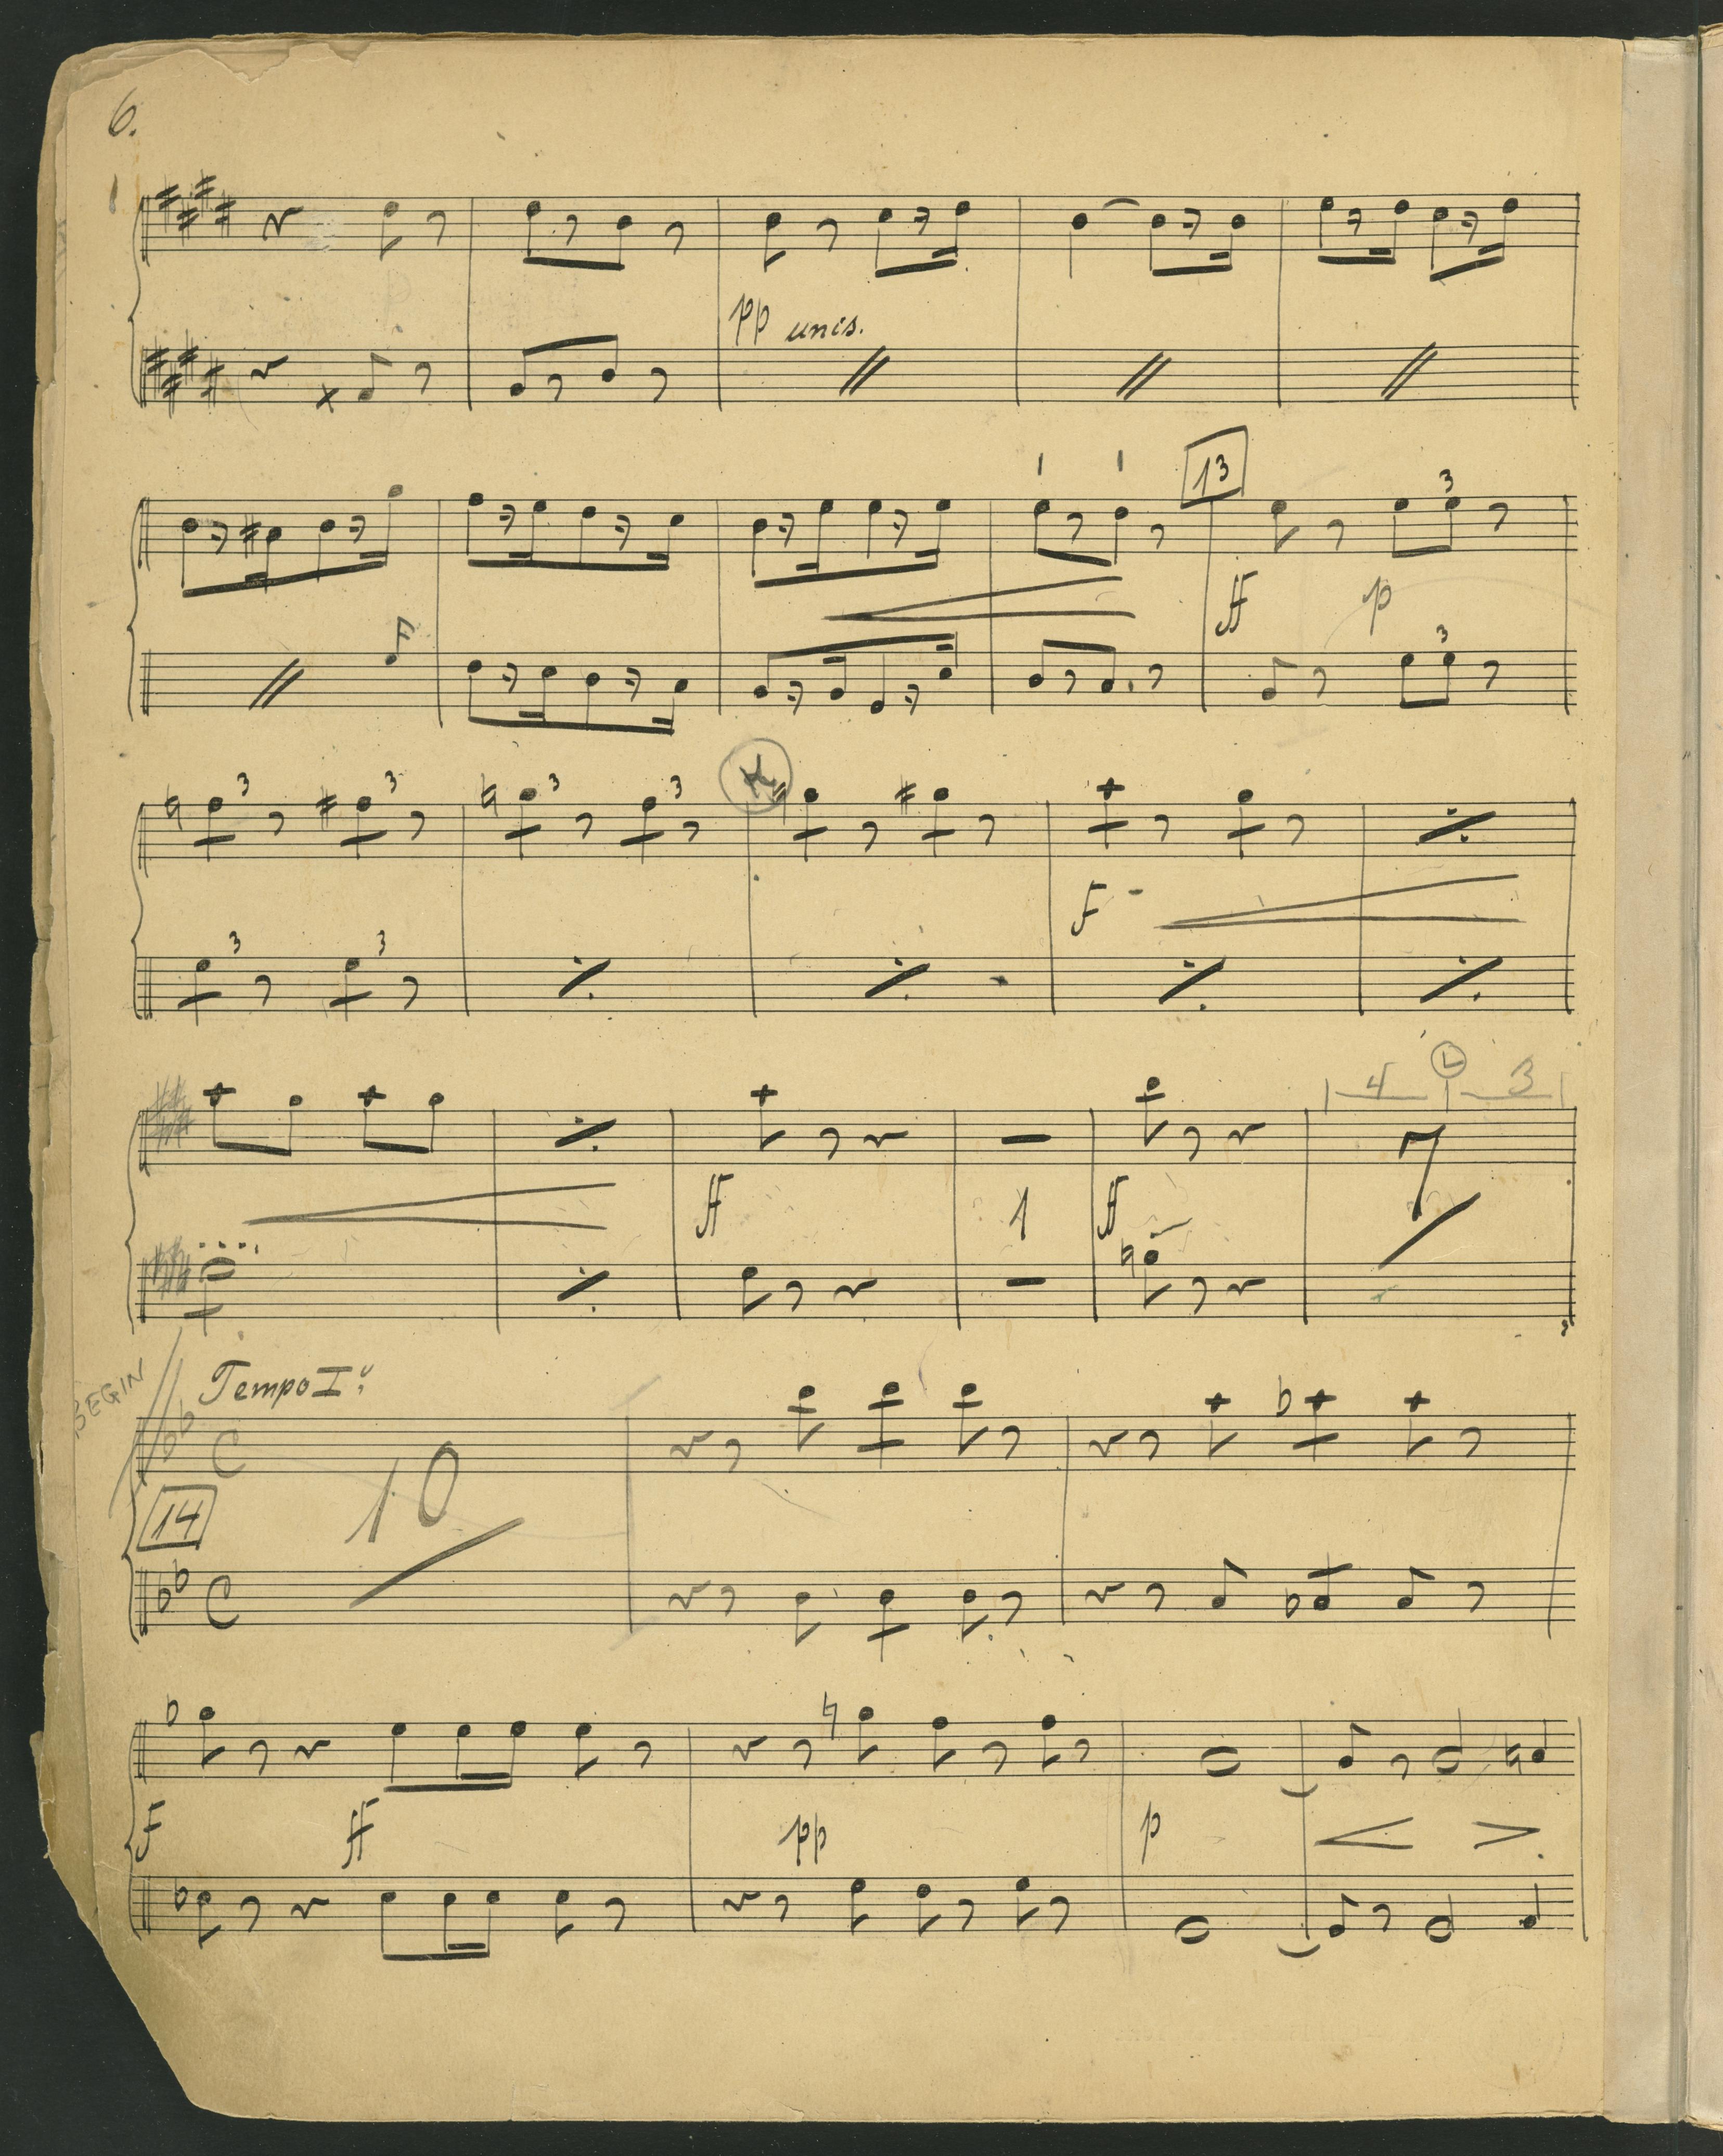 6.
pp unis.
13
3
ff p
3
3 3 3 3 K
F
3 3
4 L 3
7
ff 1 ff
BEGIN
Tempo Iº
C 10
14
C
F ff pp p